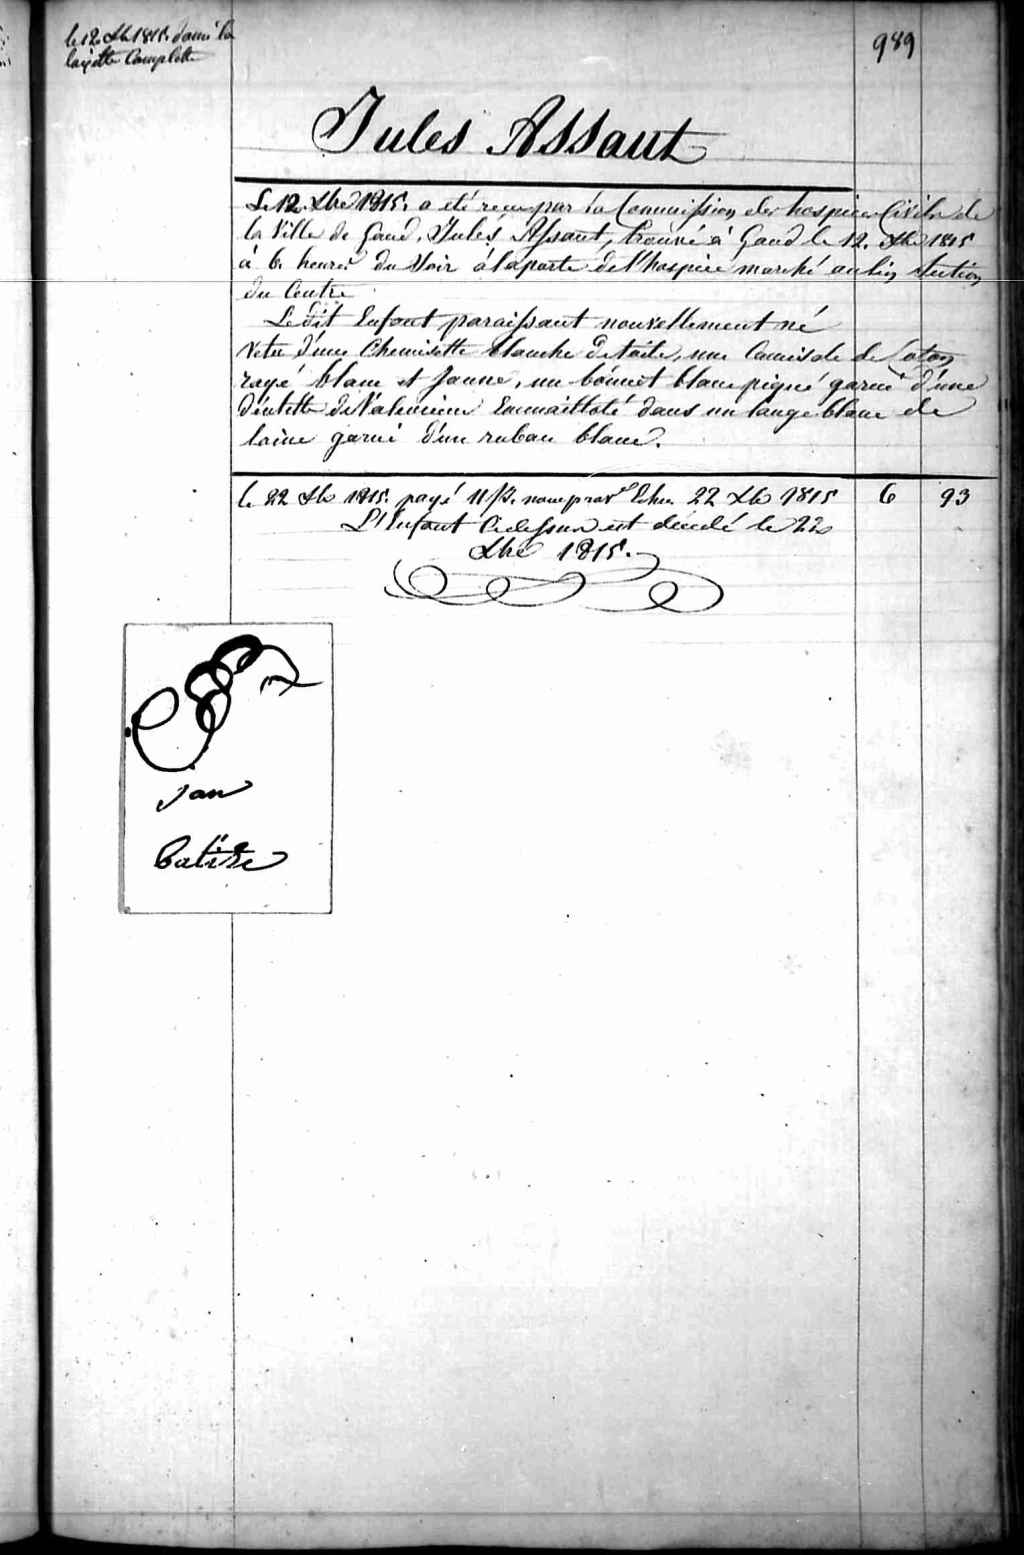 le 12 Xbre 1815. donné la
layette Complette
989
Jules Assaut
Le 12. Xbre 1815. a été recu par la Commission des hospices Civils de
la Ville de Gand, Jules Assaut, trouvé à Gand le 12. Xbre 1815
à 6. heures du Soir à la porte de l'hospice marché au lin Section
du Centre
Ledit Enfant paraissant nouvellement né
Vetu d'une Chemisette blanche de toile, une Camisole de Coton
rayé blanc et Jaune, un bonnet blanc piqué garni d'une
Dentelle de Valencienne Emmailloté dans un lange blanc de
laine garni d'un ruban blanc.
le 22 Xb 1815. payé 11 22 Xb 1815 6 93
L'Enfant Cidessus est décédé le 22
Xbre 1815.
jan
batiste